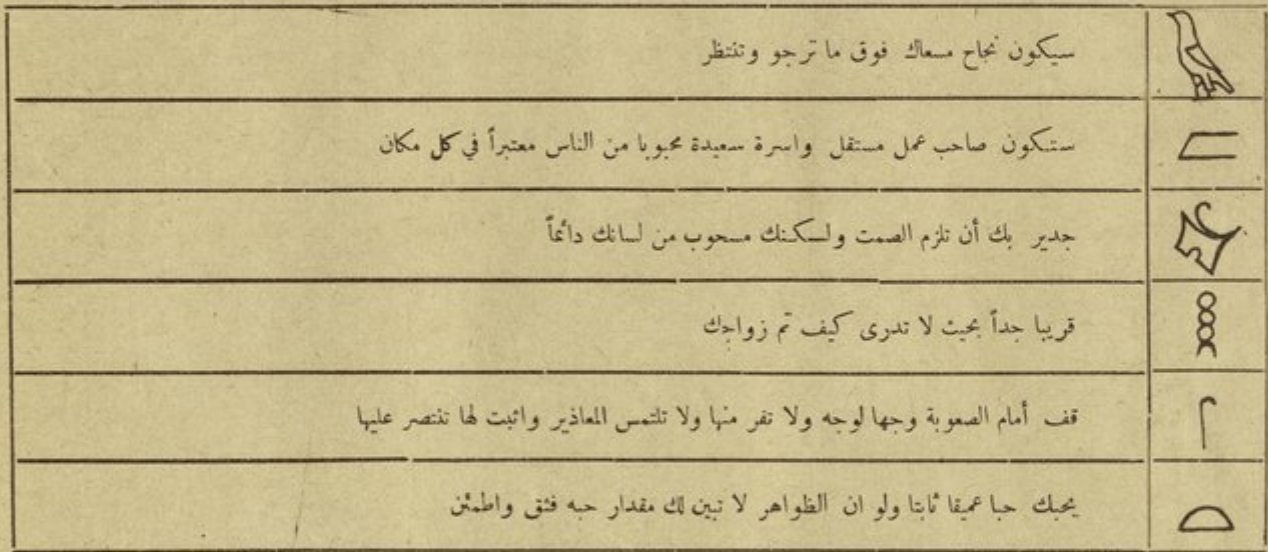 سيكون نجاح مسعاك فوق ما ترجو وتنتظر
ستكون صاحب عمل مستقل واسرة سعيدة محبوبا من الناس معتبراً في كل مكان
جدير بك أن تلزم الصمت ولسكنك مسحوب من لسانك دائماً
قريبا جداً بحيث لا تدرى كيف تم زواجك
قف أمام الصعوبة وجها لوجه ولا تفر منها ولا تلتمس المعاذير واثبت لها تنتصر عليها
يحبك حبا عميقا ثابتا ولو ان الظواهر لا تبين لك مقدار حبه فثق واطمئن